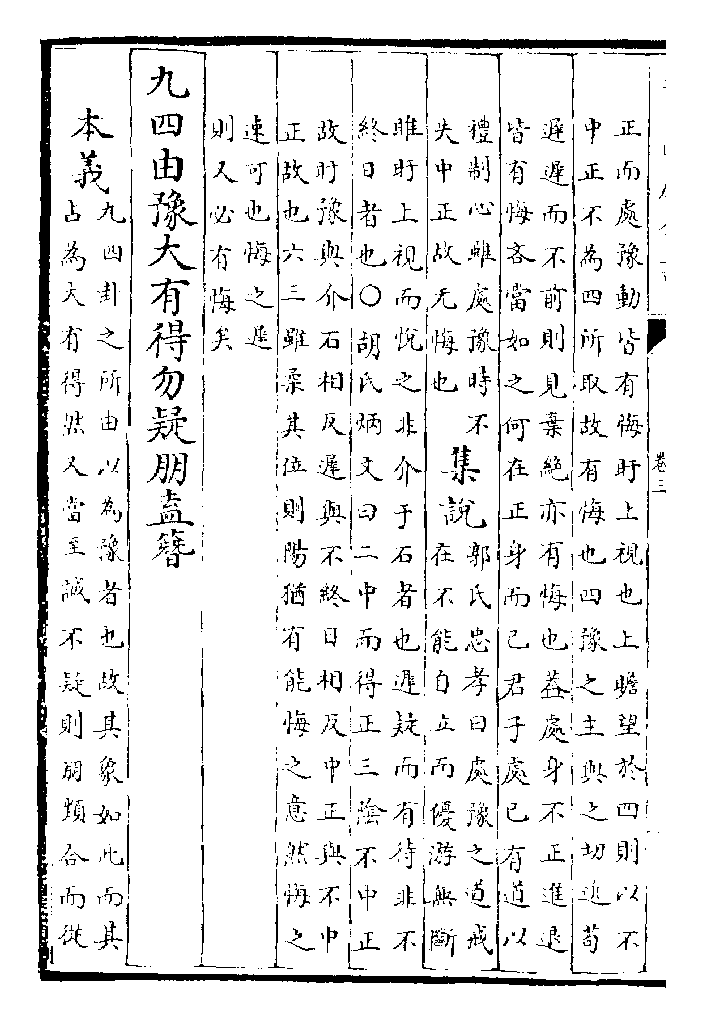 卷三
正而處豫動皆有悔盱上視也上瞻望於四則以不
中正不為四所取故有悔也四豫之主與之切近苟
遲遲而不前則見棄絕亦有悔也葢處身不正進退
皆有悔吝當如之何在正身而已君子處已有道以
禮制心雖處豫時不
失中正故无悔也
集說
郭氏忠孝曰處豫之道戒
在不能自立而優游無斷
雎盱上視而悅之非介于石者也遲疑而有待非不
終日者也〇胡氏炳文曰二中而得正三陰不中正
故盱豫與介石相反遲與不終日相反中正與不中
正故也六三雖柔其位則陽猶有能悔之意然悔之
速可也悔之遲
則又必有悔矣
九四由豫大有得勿疑朋盍簪
本義
九四卦之所由以為豫者也故其象如此而其
占為大有得然又當至誠不疑則朋類合而從